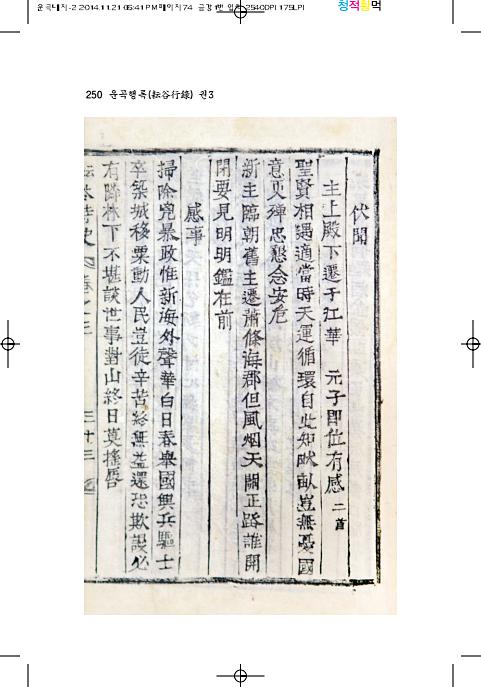 운곡대지-2 2014.11.21 05:41 PM 페이지74
2540DPI 175LPI
청적황먹
250 운곡행록(耘谷行錄) 권3
伏聞
主上殿下遷于江華 元子卽位有感 二首
聖賢相遇適當時天運循環自此知畎畝豈無憂國
意更殫忠懇念安危
新主臨朝舊主遷蕭條海郡但風烟天關正路誰開
閉要見明明鑑在前
感事
掃除兇暴政惟新海外聲華白日春擧國興兵驅士
卒築城移粟動人民豈徒辛苦終無益還恐欺謾必
有隣林下不堪談世事對山終日莫搖唇
耘谷詩史 卷之三 三十三